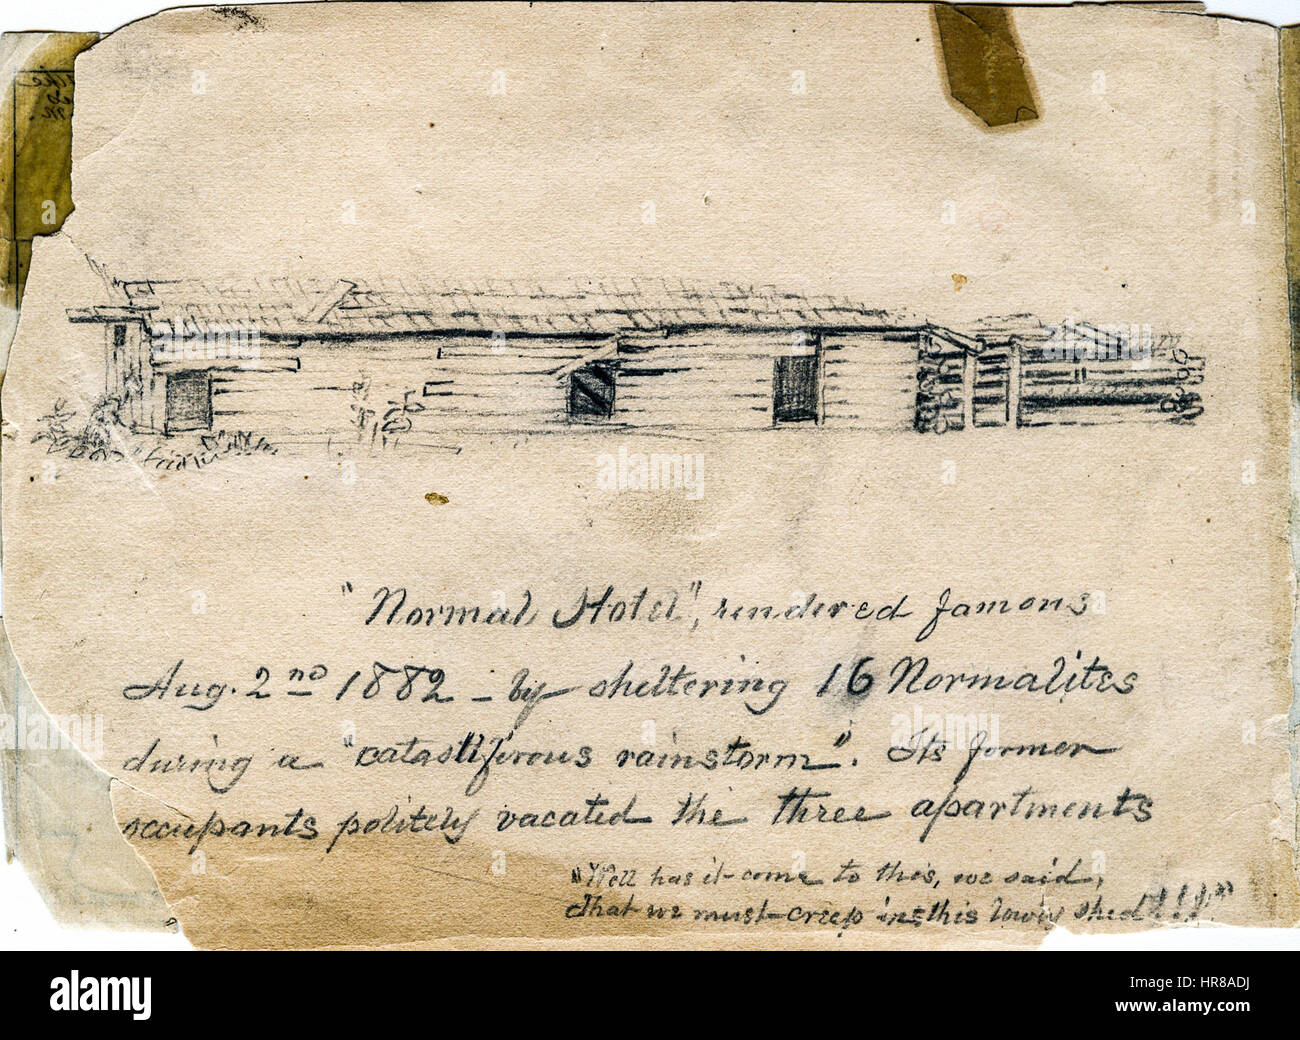 "Normal Hotel", rendered famous
Aug. 2nd 1882 - by sheltering 16 Normalites
during a "catastiferous rainstorm". Its former
occupants politely vacated the three apartments
"Well has it come to this, we said,
That we must creep in this lowly shed!!!"
alamy stock photo
a alamy
HR8ADJ
www.alamy.com